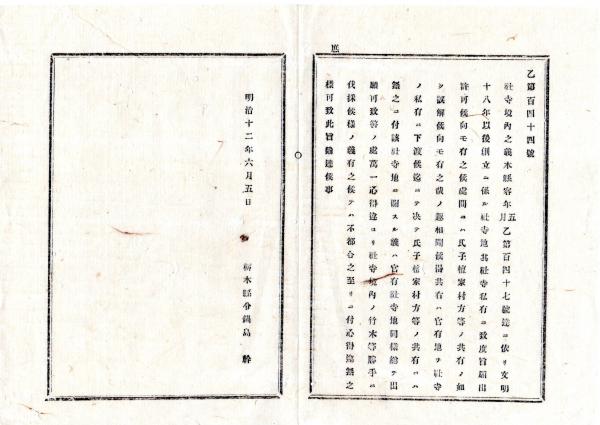 庶
乙第百四十四號
社寺境內之義本縣客年五月乙第百四十七號達ニ依リ文明
十八年以後創立ニ係ル社寺地其社寺私有ニ致度旨願出
許可候向モ有之候處間ニハ氏子檀家村方等ノ共有ノ如
ク誤解候向モ有之哉ノ趣相聞候得共右ハ官有地ヲ社寺
ノ私有ニ下渡候迄ニテ決テ氏子檀家村方等ノ共有ニハ
無之ニ付該社寺地ニ關スル義ハ官有社寺地同樣總テ出
願可致筈ノ處萬一心得違ヨリ社寺境內ノ竹木等勝手ニ
伐採候樣ノ義有之候テハ不都合之至リニ付心得違無之
樣可致此旨論達候事
明治十二年六月五日
栃木縣令鍋島幹